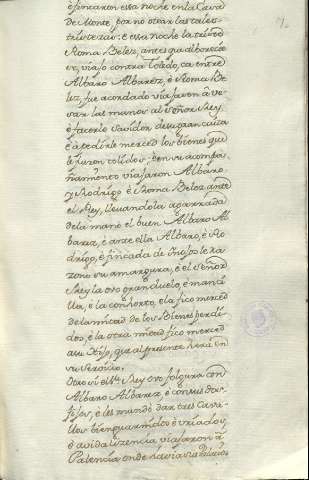 e fincaron essa noche en la Casa
de Monte, por no otear las
tristezas: e essa noche la triste
Roma Belez, antes que alboreciesse
er, viaso contra Toledo, ca entre
Albaro Albarez, e Roma Be
lez, fue acordado viasaron a ve
sar las manos al señor Rey,
e facerlo savidor de su gran cuita
e a pedirle merced los bienes que
le fueron tolidos: e en su acompa
ñamiento viajaron Albaro,
y Rodrigo e Roma Belez ante
el Rey, llevandola agarrada
de la mano el buen Albaro Al
barez, e ante ella Albaro, e Ro
drigo, e fincada de inojos le ra
zono su amargura, e el Señor
Rey la ovo gran duelo, e manci
lla, e la conhorto, e la fizo merced
de la mitad de los Bienes perdi
dos, e la otra mitad fizo merced
a su Fijo, que al presente era en
su servicio.
Otro si el Rey ovo folgura con
Albaro Albarez, e con sus dos
fijos, e les mando dar tres Cava
llos bien guarnidos e vriados,
e avida lizencia viajaron a
Palencia onde havia sus Palacios